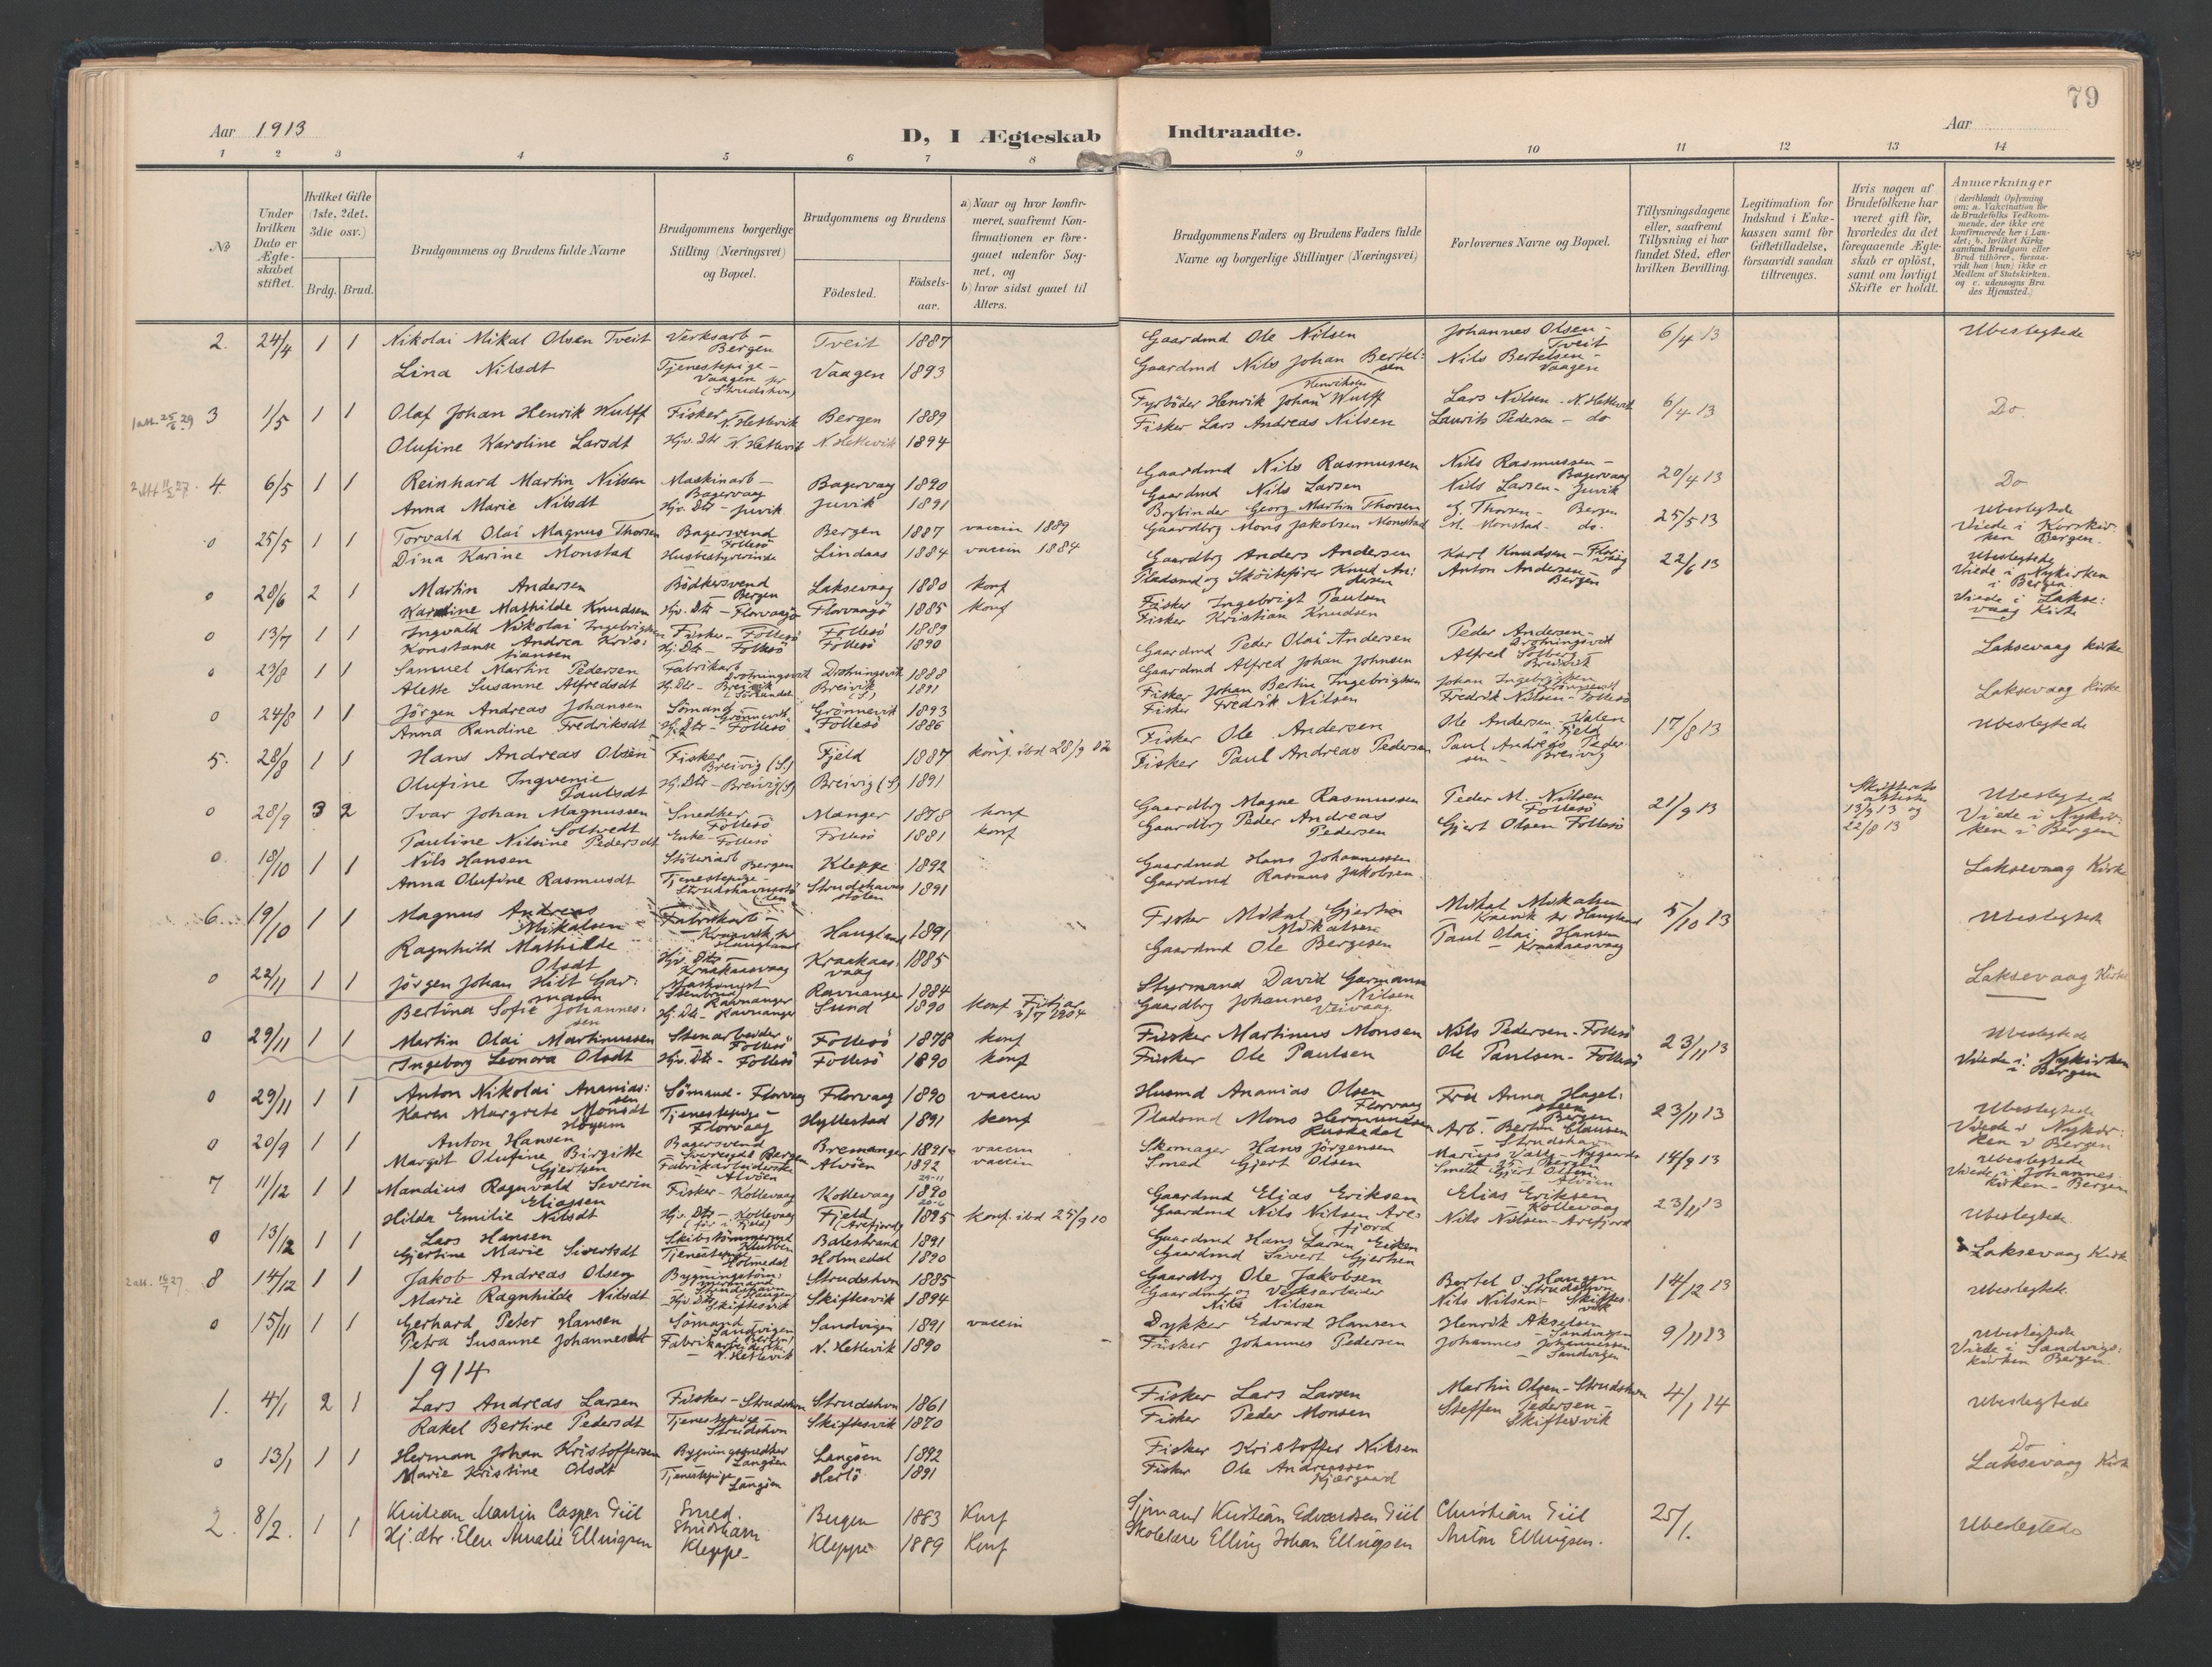 79
Aar 1913
D, I Ægteskab Indtraadte.
Aar
1 2 3 4 5 6 7 8 9 10 11 12 13 14
No
Under hvilken Dato er Ægteskabet stiftet.
Hvilket Gifte (1ste, 2det, 3die osv.)
Brdg. Brud.
Brudgommens og Brudens fulde Navne
Brudgommens borgerlige Stilling (Næringsvei) og Bopæl.
Brudgommens og Brudens
Fødested.
Fødselsaar.
a) Naar og hvor konfirmeret, saafremt Konfirmationen er foregaaet udenfor Sognet, og
b) hvor sidst gaaet til Alters.
Brudgommens Faders og Brudens Faders fulde Navne og borgerlige Stillinger (Næringsvei)
Forlovernes Navne og Bopæl.
Tillysningsdagene eller, saafremt Tillysning ei har fundet Sted, efter hvilken Bevilling.
Legitimation for Indskud i Enkekassen samt for Giftetilladelse, forsaavidt saadan tiltrænges.
Hvis nogen af Brudefolkene har været gift før, hvorledes da det foregaaende Ægteskab er opløst, samt om lovligt Skifte er holdt.
Anmærkninger
(deriblandt Oplysning om: a. Vakcination for de Brudefolks Vedkommende, der ikke ere konfirmerede her i Landet; b. hvilket Kirkesamfund Brudgom eller Brud tilhører, forsaavidt han (hun) ikke er Medlem af Statskirken. og c. udensogns Brudes Hjemsted.)
2. 24/4 1 1 Nikolai Mikal Olsen Tveit Verksarb - Bergen Tveit 1887 Gaardmd Ole Nilsen Johannes Olsen - Tveit 6/4 13 Ubeslegtede
Lina Nilsdt Tjenestepige - Vaagen pr (Strudshvn) Vaagen 1893 Gaardmd Nils Johan Bertelsen Nils Bertelsen - Vaagen
3 1/5 1 1 Olaf Johan Henrik Wulff Fisker N. Hetlevik Bergen 1889 Fyrbøder Henrik Johan Henriksen Wulff Lars Nilsen - N. Hetlevik 6/4 13 Do.
Olufine Karoline Larsdt Hjv. Dtr N. Hetlevik N. Hetlevik 1894 Fisker Lars Andreas Nilsen Laurits Pedersen - do
4. 6/5 1 1 Reinhard Martin Nilsen Maskinarb - Bagervaag Bagervaag 1890 Gaardmd Nils Rasmussen Nils Rasmussen - Bagervaag 20/4 13 Do
Anna Marie Nilsdt Hjv. Dtr - Juvik Juvik 1891 Gaardmd Nils Larsen Nils Larsen - Juvik
0 25/5 1 1 Torvald Olai Magnus Thorsen Bagersvend Follesö Bergen 1887 vaccin 1889 Bogbinder Georg Martin Thorsen G. Thorsen - Bergen 25/5 13 Ubeslegtede
Dina Karine Monstad Husbestyrerinde Lindaas 1884 vaccin 1884 Gaardbrg Mons Jakobsen Monstad M. Monstad - do. Viede i Korskirken Bergen.
0 28/6 2 1 Martin Andersen Bödkersvend - Bergen Laksevaag 1880 konf Gaardbrg Anders Andersen Karl Knudsen - Florvaag 22/6 13 Ubeslegtede
Karoline Mathilde Knudsen Hjv. Dtr - Florvaagö Florvaagö 1885 konf Pladsmd og Sköitefører Knud Andersen Anton Andersen - Bergen Viede i Nykirken i Bergen.
0 13/7 1 1 Ingvald Nikolai Ingebrigtsen Fisker - Follesö Follesö 1889 Fisker Ingebrigt Paulsen Viede i Laksevaag Kirke
Konstanse Andrea Kristiansen Hj. Dtr - Follesö Follesö 1890 Fisker Kristian Knudsen
0 23/8 1 1 Samuel Martin Pedersen Fabrikarb Drotningsvik Drotningsvik 1888 Gaardmd Peder Olai Andersen Peder Andersen - Drotningsvik Laksevaag kirke
Alette Susanne Alfredsdt Hj. Dtr - Breivik Breivik (S.) 1891 Gaardmd Alfred Johan Johnsen Alfred Solberg - Breivik
0 24/8 1 1 Jörgen Andreas Johansen Sömand Grönnevik Grönnevik 1893 Fisker Johan Bertin Ingebrigtsen Johan Ingebrigtsen Grönnevik Laksevaag Kirke
Anna Randine Fredriksdt Hj. Dtr - Follesö Follesö 1886 Fisker Fredrik Nilsen Fredrik Nilsen - Follesö
5. 28/8 1 1 Hans Andreas Olsen Fisker Breivig (S.) Fjeld 1887 konf. ibd 28/9 02 Fisker Ole Andersen Ole Andersen - Valen i Fjeld 17/8 13 Ubeslegtede
Olufine Ingvenie Paulsdt Hj. Dtr - Breivig (S) Breivig (S) 1891 Fisker Paul Andreas Pedersen Paul Andreas Pedersen - Breivig
0 28/9 3 2 Ivar Johan Magnussen Soltvedt Snedker - Follesö Manger 1878 konf Gaardbrg Magne Rasmussen Peder M. Nilsen Follesö 21/9 13 Skifterets attester 13/9 13 og 22/8 13 Ubeslegtede
Pauline Nilsine Pedersdt Enke - Follesö Follesö 1881 konf Gaardbrg Peder Andreas Pedersen Gjert Olsen Follesö Viede i Nykirken i Bergen
0. 18/10 1 1 Nils Hansen Bergen Kleppe 1892 Gaardmd Hans Johannessen Laksevaag Kirke
Anna Olufine Rasmusdt Tjenestepige - Strudshavnstölen Strudshavnstölen 1891 Gaardmd Rasmus Jakobsen
6. 19/10 1 1 Magnus Andreas Mikalsen Fabrikarb - Kraavik pr Haugland Haugland 1891 Fisker Mikal Gjertsen Mikalsen Mikal Mikalsen - Kraavik pr Haugland 5/10 13 Ubeslegtede
Ragnhild Mathilde Olsdt Hjv. Dtr - Kraakaasvaag Kraakaasvaag 1885 Gaardmd Ole Bergesen Paul Olai Hansen - Kraakaasvaag
0 22/11 1 1 Jörgen Johan Hilt Garmann Maskinist (Stenbrud) Ravnanger Ravnanger 1884 Styrmand David Garmann Laksevaag Kirke
Bertina Sofie Johannessen Hj. Dtr - Ravnanger Sund 1890 konf Fitjar 3/7 1904 Gaardbrg Johannes Nilsen Veivaag
0 29/11 1 1 Martin Olai Martinussen Stenarbeider Follesö Follesö 1878 konf Fisker Martinus Monsen Nils Pedersen - Follesö 23/11 13 Ubeslegtede
Ingeborg Leonora Olsdt Hjv. Dtr - Follesö Follesö 1890 konf Fisker Ole Paulsen Ole Paulsen - Follesö Viede i Nykirken i Bergen
0 29/11 1 1 Anton Nikolai Ananiassen Sömand - Florvaag Florvaag 1890 vaccin Husmd Ananias Olsen Florvaag Fru Anna Hagelsteen Bergen 23/11 13 Ubeslegtede
Karen Margrete Monsdt Tjenestepige - Florvaag Hyllestad 1891 konf Pladsmd Mons Hermundsen Arb. Bertin Clausen - Strudshavn Viede i Nykirken i Bergen
0 20/9 1 1 Anton Hansen Bagersvend Bergen Bremanger 1891 vaccin Skomager Hans Jörgensen 14/9 13 Ubeslegtede
Margit Olufine Birgitte Gjertsen Fabrikarbeiderske Alvöen Alvöen 1892 vaccin Smed Gjert Olsen Smed Gjert Olsen - Alvöen Viede i Johanneskirken - Bergen
7 11/12 1 1 Mandius Ragnvald Severin Eliassen Fisker - Kollevaag Kollevaag 1890 Gaardmd Elias Eriksen Elias Eriksen - Kollevaag 23/11 13 Ubeslegtede
Hilda Emilie Nilsdt Hjv. Dtr - Kollevaag (før i Fjeld) Fjeld (Arefjord) 1895 konf. ibd 25/9 10 Gaardmd Nils Nilsen Arefjord Nils Nilsen - Arefjord
0 13/12 1 1 Lars Hansen Skibstömmermd Balestrand 1891 Gaardmd Hans Larsen Eiken Laksevaag Kirke
Gjertine Marie Sivertsdt Tjenestepige - Holmedal Holmedal 1890 Gaardmd Sivert Gjertsen
8 14/12 1 1 Jakob Andreas Olsen Bygningstömmermand Strudshvn 1885 Gaardbrg Ole Jakobsen Bertel O. Haugen Strudshvn 14/12 13 Ubeslegtede
Marie Ragnhilde Nilsdt Hjv. Dtr - Skiftesvik Skiftesvik 1894 Gaardmd og Verksarbeider Nils Nilsen Nils Nilsen - Skiftesvik
0 15/11 1 1 Gerhard Peter Hansen Sömand Sandvigen Bergen Sandvigen 1891 vaccin Dykker Edvard Hansen Henrik Akselsen - Sandvigen 9/11 13 Ubeslegtede
Petra Susanne Johannesdt Fabrikarbeiderske - N. Hetlevik N. Hetlevik 1890 Fisker Johannes Pedersen Johannes Johannessen - Sandvigen Viede i Sandvigskirken Bergen.
1914
1. 4/1 2 1 Lars Andreas Larsen Fisker - Strudshvn Strudshvn 1861 Fisker Lars Larsen Martin Olsen - Strudshvn 4/1 14 Ubeslegtede
Rakel Bertine Pedersdt Tjenestepige - Strudshvn Skiftesvik 1870 Fisker Peder Monsen Steffen Pedersen - Skiftesvik
0 13/1 1 1 Herman Johan Kristoffersen Bygningssnedker Langöen Langöen 1892 Fisker Kristoffer Nilsen Do Laksevaag Kirke
Marie Kristine Olsdt Tjenestepige Langöen Herlö 1891 Fisker Ole Andreassen Kjærgaard
2. 8/2. 1 1 Kristean Martin Casper Giil Smed. Strudshavn Bergen 1883 Konf Sjömand Kristian Edvardsen Giil Christian Giil 25/1. Ubeslegtede
Hj. dtr. Elen Amalie Ellingsen Kleppe Kleppe 1889 Konf Skolelærer Elling Johan Ellingsen Anton Ellingsen.